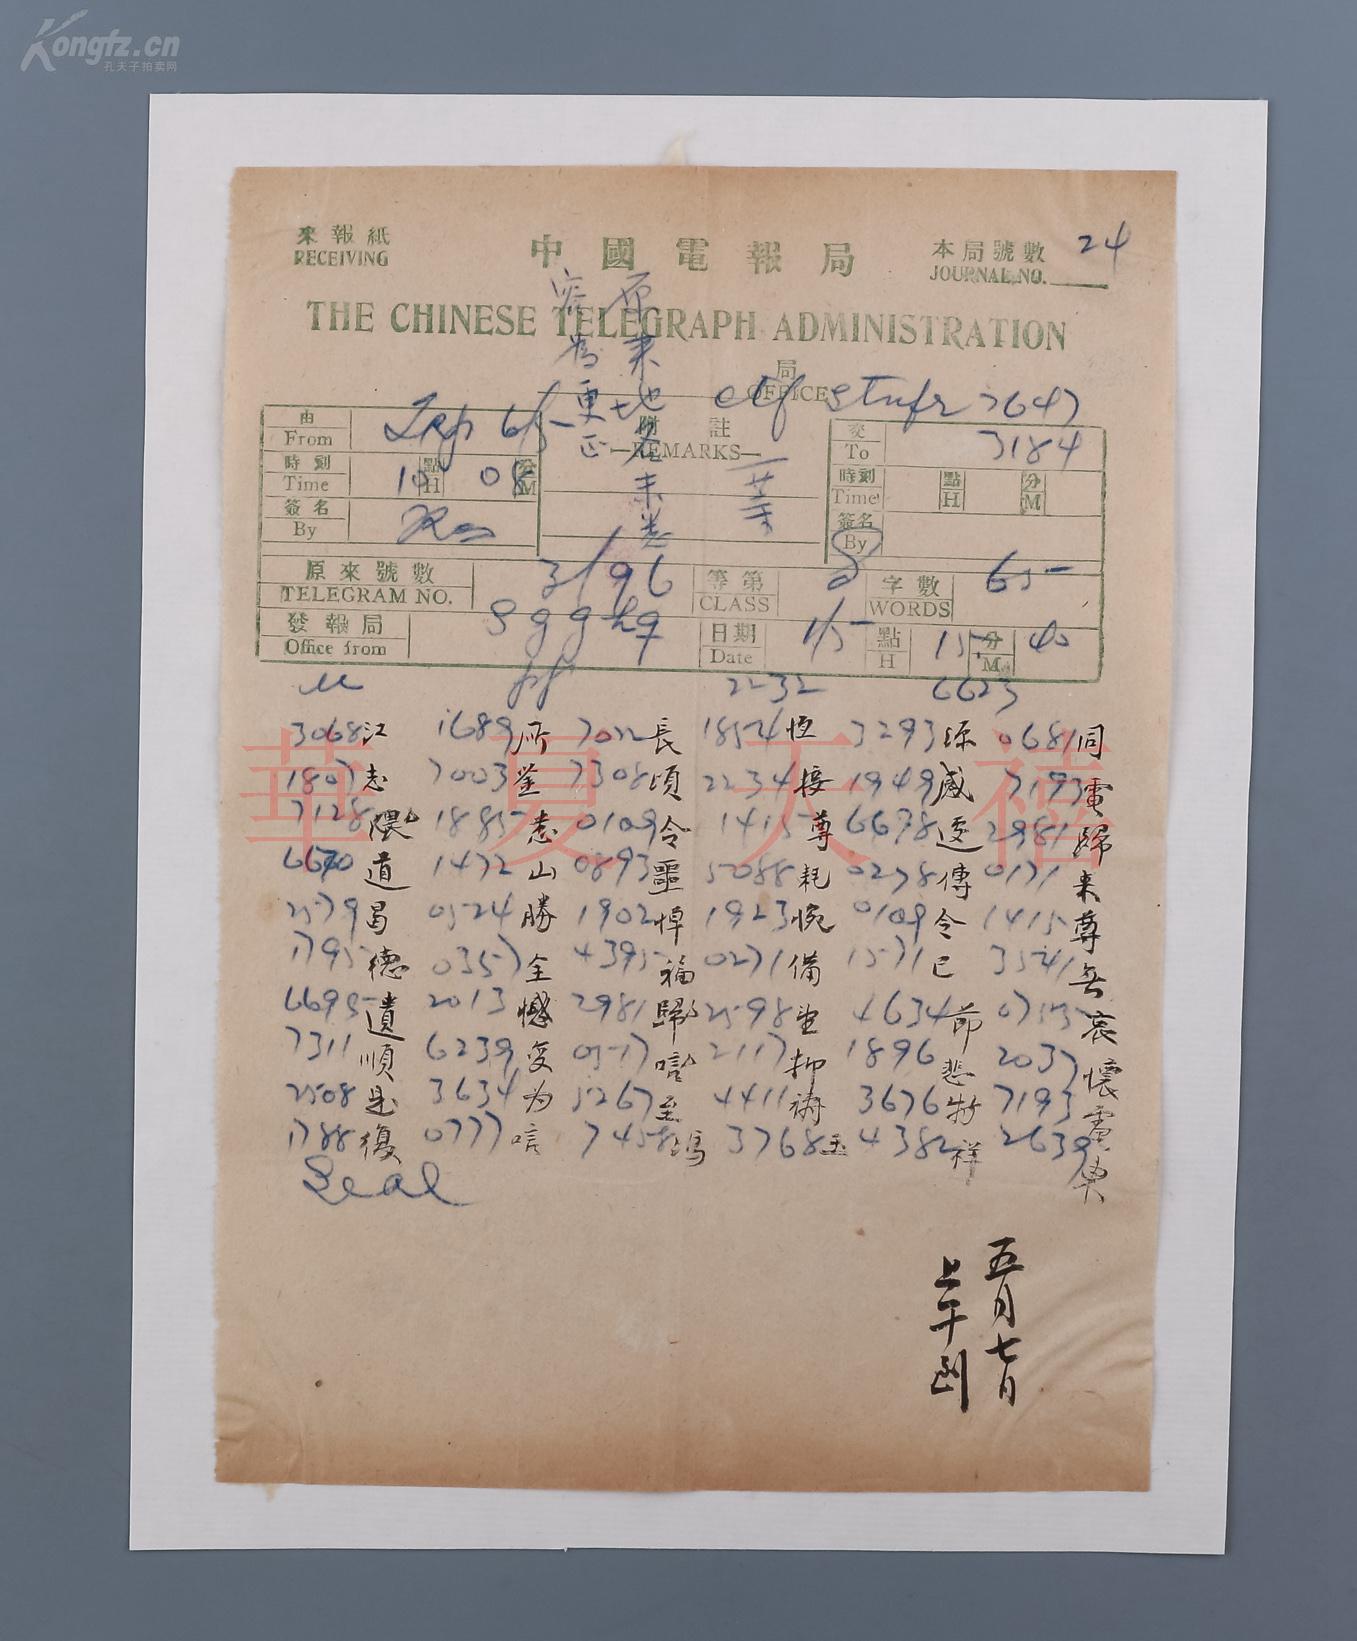 Kongfz.cn
孔夫子拍卖网
來報紙
RECEIVING
中國電報局
本局號數 24
JOURNAL NO.
THE CHINESE TELEGRAPH ADMINISTRATION
原来地
為更正
局
OFFICE
7647
由
From
附註
REMARKS
交
To
3184
時刻
Time
點
H
08
分
M
時刻
Time
點
H
分
M
簽名
By
簽名
By
原來號數
TELEGRAM NO.
3/96
等第
CLASS
字數
WORDS
65
發報局
Office from
日期
Date
1/5
點
H
15
分
M
40
2232 6623
3068江 1689所 7022長 1854恆 3293 0681同
1807志 7003鉴 7308頃 2234接 1949感 7193電
7128隈 1885悉 0109令 1415尊 6678遽 2981歸
6670道 1472山 0893噩 5088耗 0278傳 0171来
2579昌 0524勝 1902悼 1923惋 0109令 1415尊
1795德 0357全 4395福 0271備 1571已 3541
6695遺 2013憾 2981歸 2598 4634節 0755哀
7311順 6239 0517 2117抑 1896悲 2037懷
2508是 3634为 5267至 4411禱 3676特 7193電
1788復 0777唁 7458馮 3768玉 4382祥 2639奠
Seal
五月七日
上午到
華夏天禧